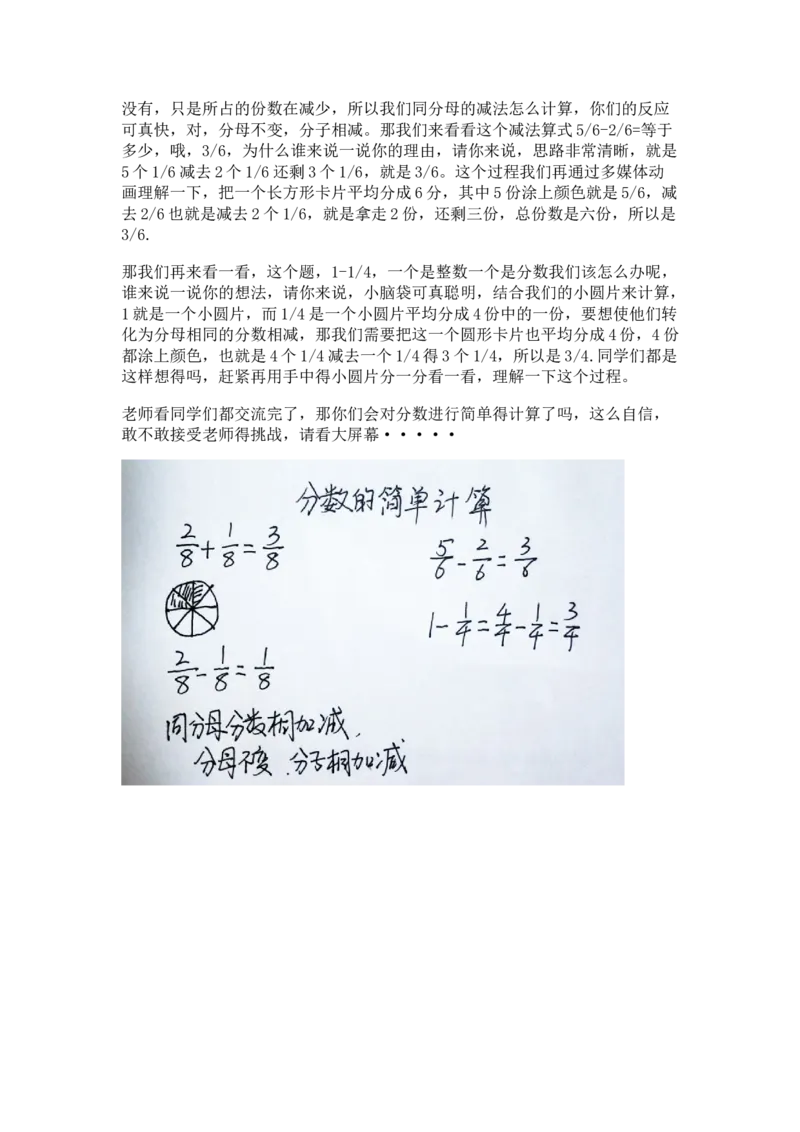 没有，只是所占的份数在减少，所以我们同分母的减法怎么计算，你们的反应
可真快，对，分母不变，分子相减。那我们来看看这个减法算式5/6-2/6=等于
多少，哦，3/6，为什么谁来说一说你的理由，请你来说，思路非常清晰，就是
5个1/6减去2个1/6还剩3个1/6，就是3/6。这个过程我们再通过多媒体动
画理解一下，把一个长方形卡片平均分成6分，其中5份涂上颜色就是5/6，减
去2/6也就是减去2个1/6，就是拿走2份，还剩三份，总份数是六份，所以是
3/6.
那我们再来看一看，这个题，1-1/4，一个是整数一个是分数我们该怎么办呢，
谁来说一说你的想法，请你来说，小脑袋可真聪明，结合我们的小圆片来计算，
1就是一个小圆片，而1/4是一个小圆片平均分成4份中的一份，要想使他们转
化为分母相同的分数相减，那我们需要把这一个圆形卡片也平均分成4份，4份
都涂上颜色，也就是4个1/4减去一个1/4得3个1/4，所以是3/4.同学们都是
这样想得吗，赶紧再用手中得小圆片分一分看一看，理解一下这个过程。
老师看同学们都交流完了，那你们会对分数进行简单得计算了吗，这么自信，
敢不敢接受老师得挑战，请看大屏幕·····
分数的简单计算
2/8+1/8=3/8
5/6-2/6=3/6
1-1/4=4/4-1/4=3/4
2/8-1/8=1/8
同分母分数相加减，
分母不变，分子相加减